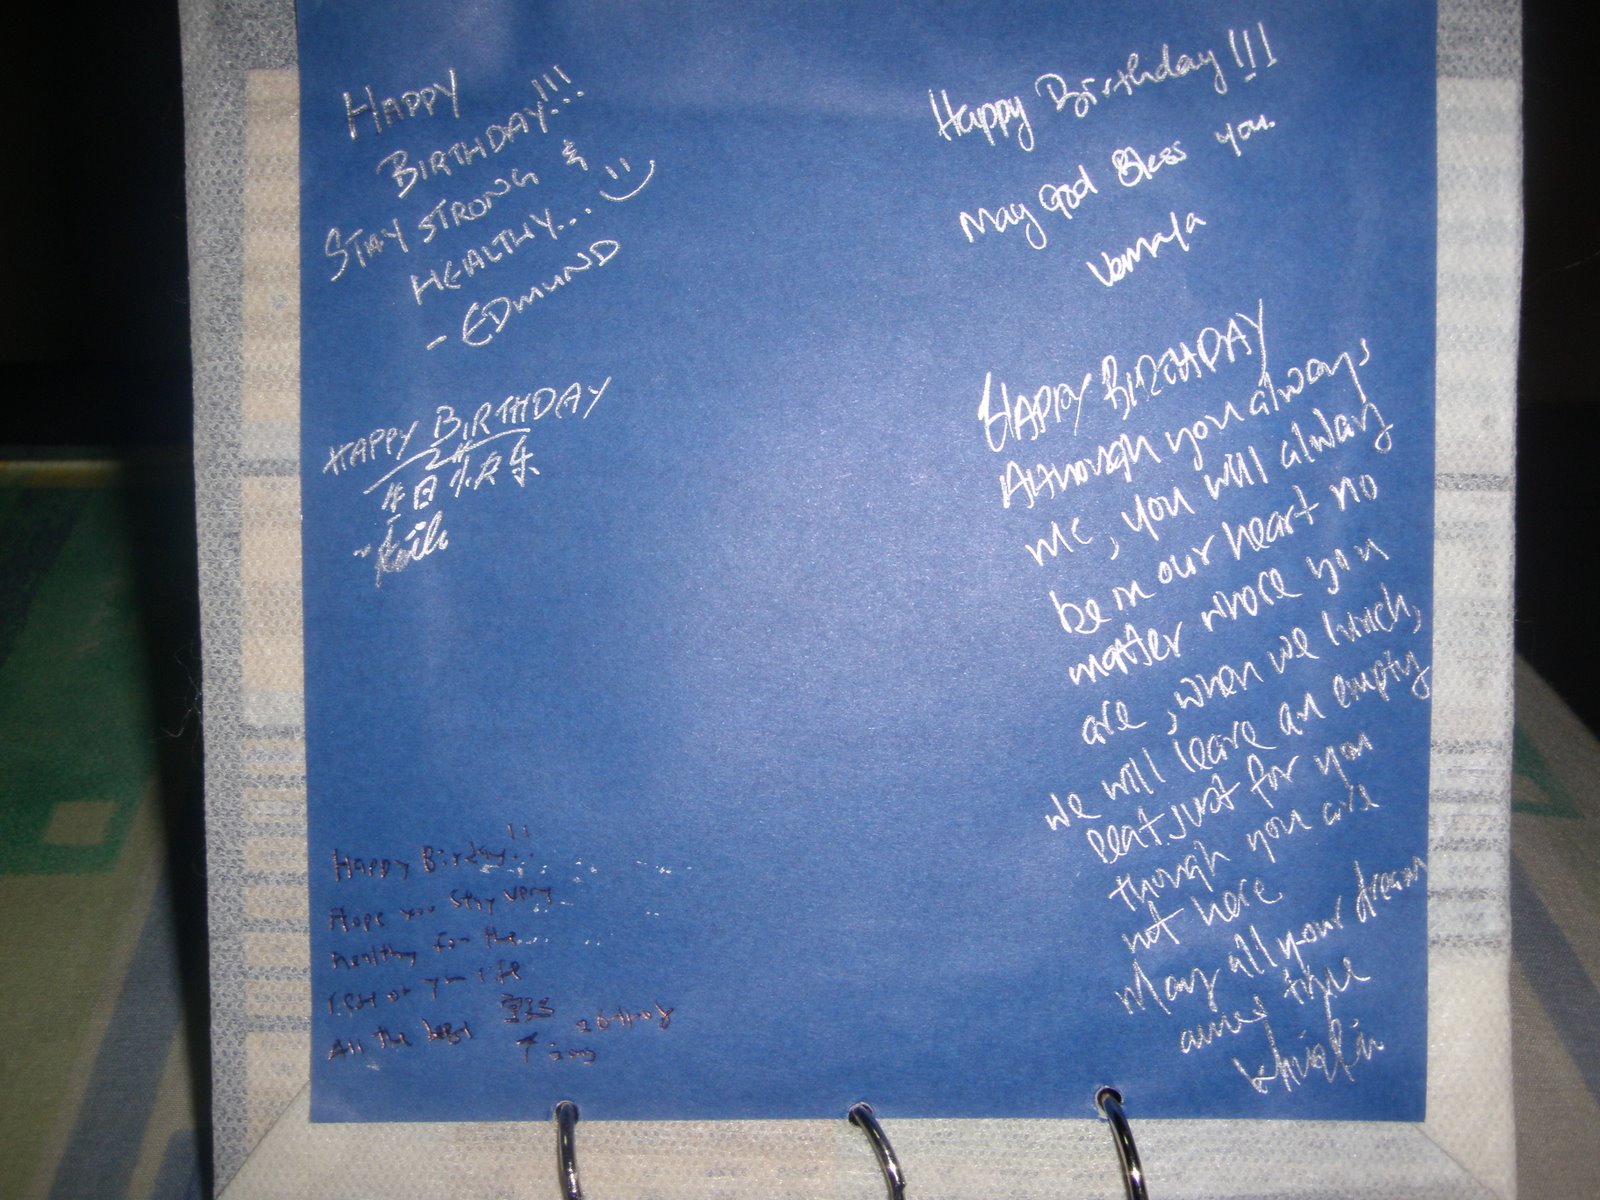 HAPPY
BIRTHDAY!!!
STAY STRONG &
HEALTHY...
- EDMUND
HAPPY BIRTHDAY
生日快乐
Happy Birday!!
Hope you stay very
healthy for the...
rest of your life
All the best
Happy Birthday!!!
May God Bless you.
HAPPY BIRTHDAY
Although you always
mc, you will alway
be in our heart no
matter where you
are, when we lunch,
we will leave an empty
seat just for you
though you are
not here
May all your dream
true